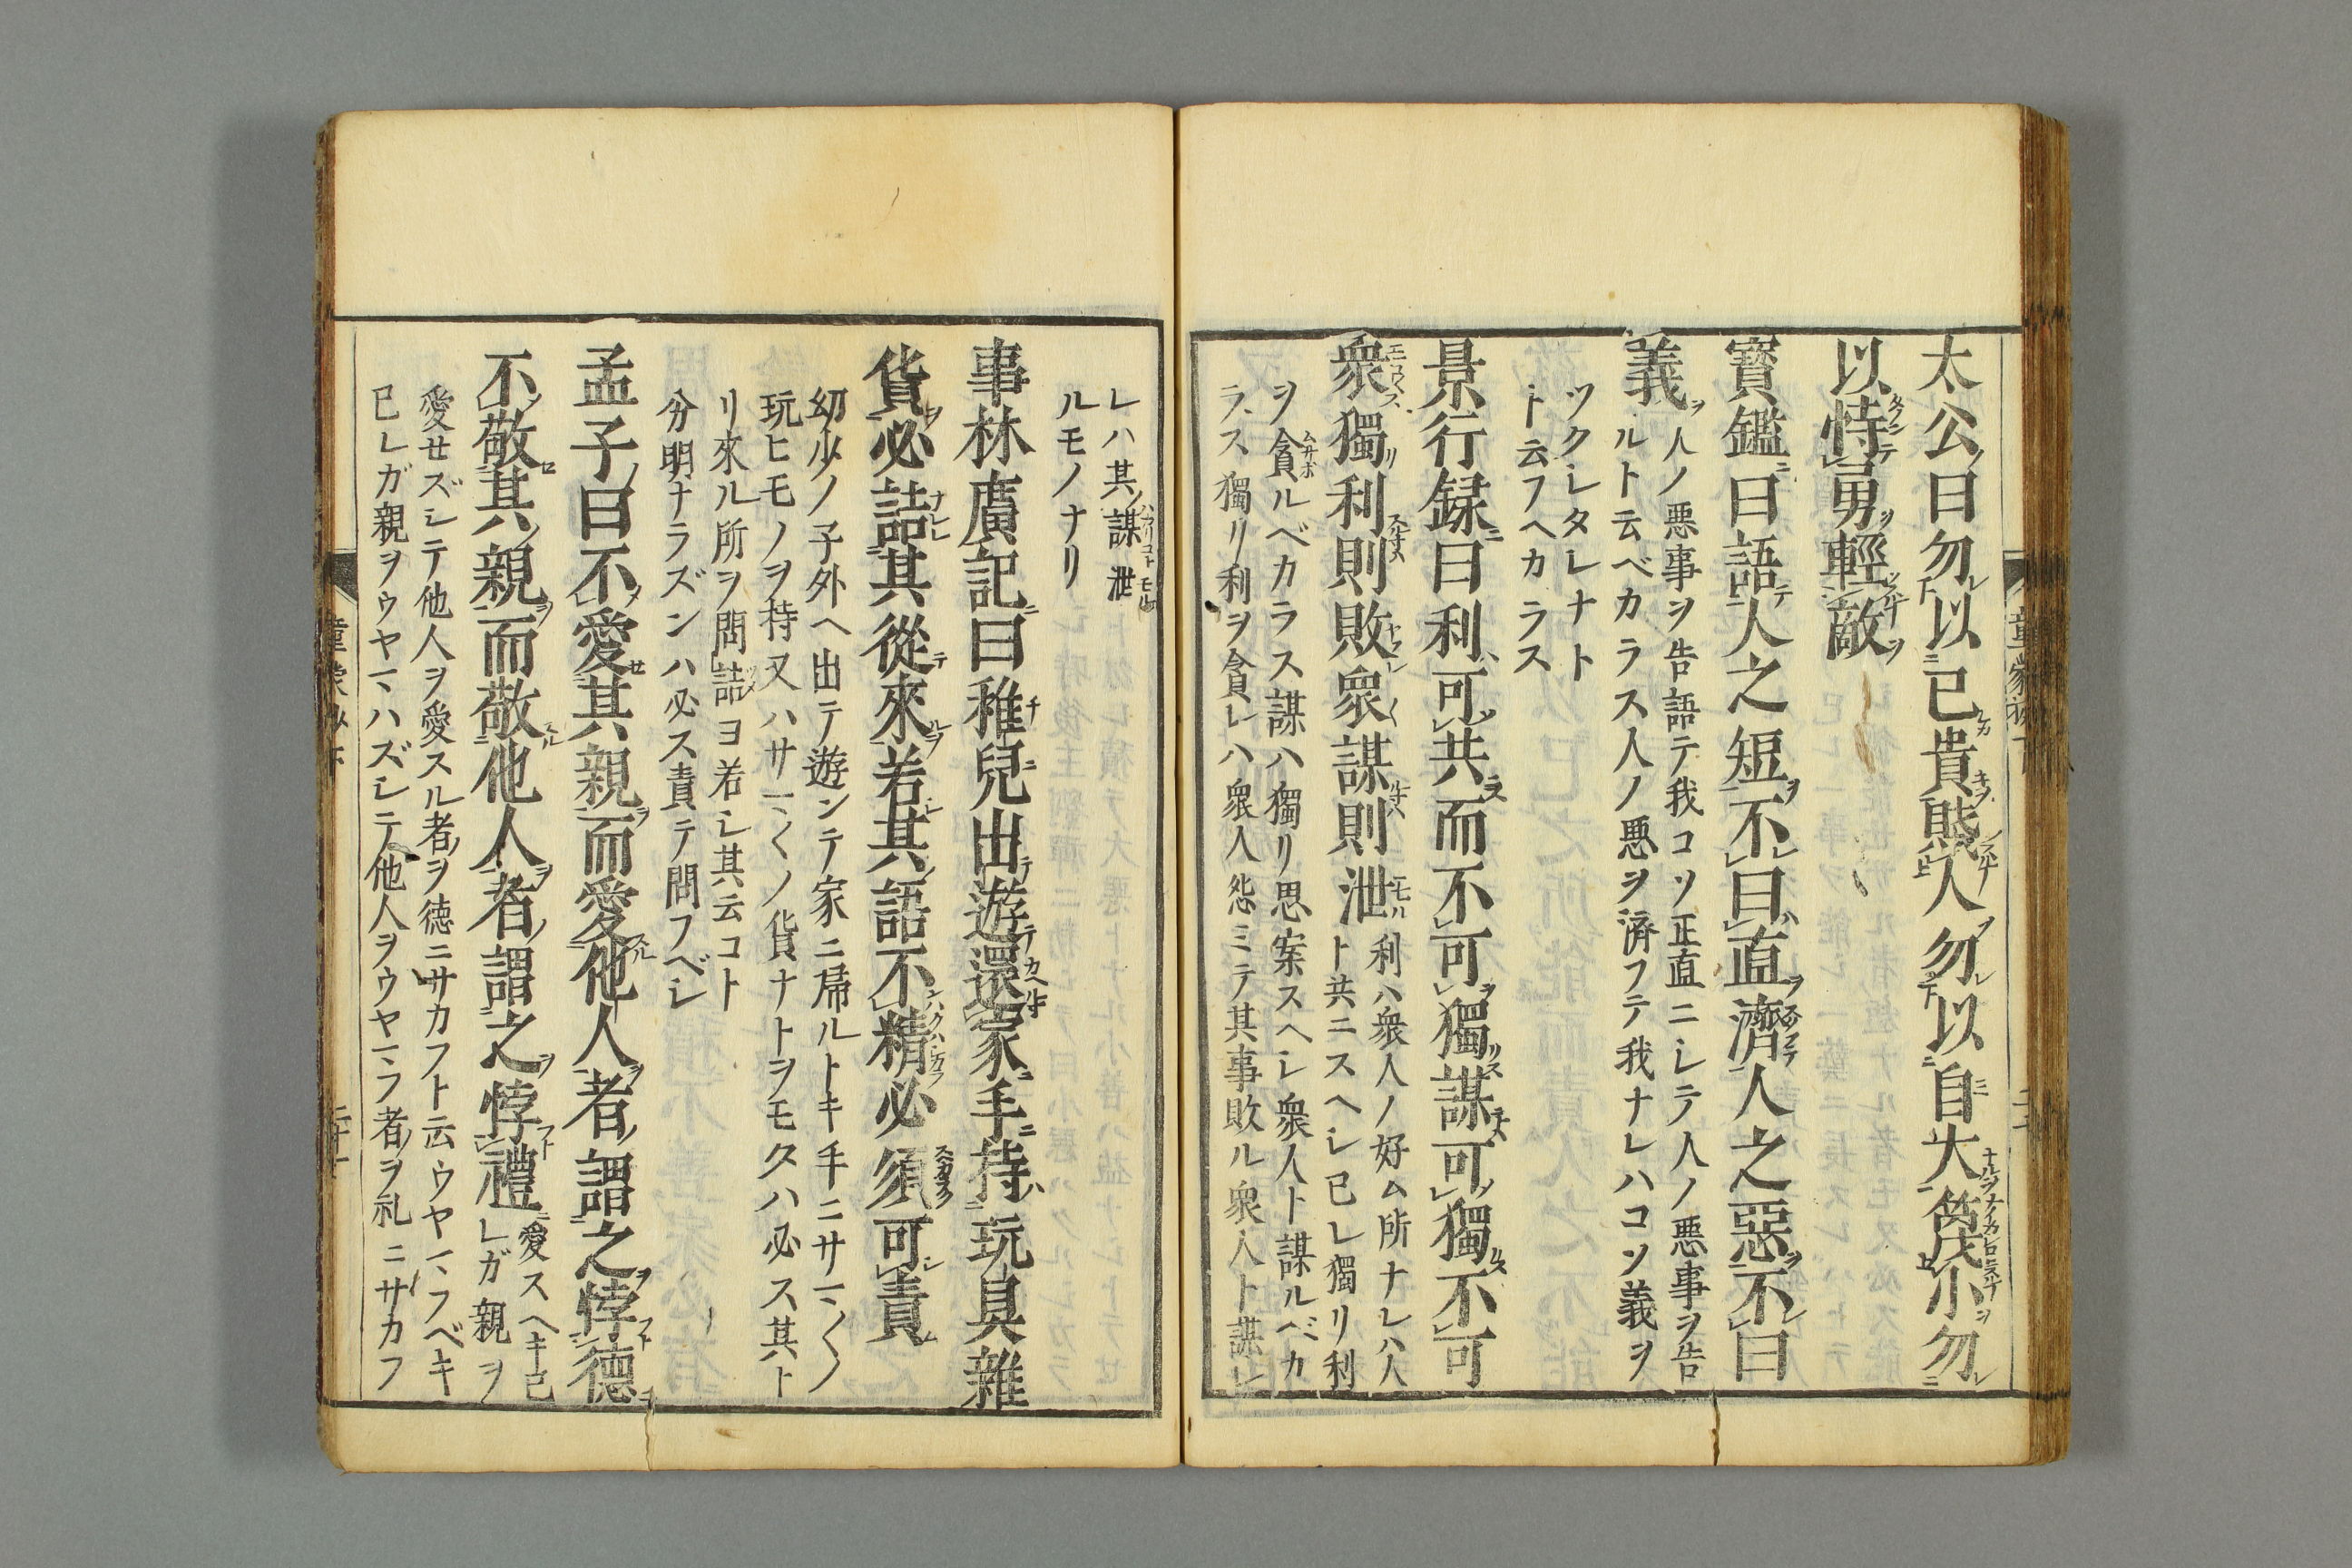 太公曰勿以己貴賤人勿以自大蔑小勿
以恃勇輕敵
寶鑑曰語人之短不曰直濟人之惡不曰
義人ノ悪事ヲ告語テ我コソ正直ニシテ人ノ悪事ヲ告
ルト云ベカラス人ノ悪ヲ済フテ我ナレハコソ義ヲ
ツクシタレナト
ト云フヘカラス
景行録曰利可共而不可獨謀可獨不可
衆獨利則敗衆謀則泄利ハ衆人ノ好ム所ナレハ人
ト共ニスヘシ已レ獨リ利
ヲ貪ルベカラス謀ハ獨リ思案スヘシ衆人ト謀ルベカ
ラス獨リ利ヲ貪レハ衆人怨ミテ其事敗ル衆人ト謀
レハ其謀泄
ルモノナリ
事林廣記曰稚兒出遊還家手持玩具雜
貨必詰其從來若其語不精必須可責
幼少ノ子外ヘ出テ遊ンテ家ニ帰ルトキ手ニサマ〱ノ
玩ヒモノヲ持又ハサマ〱ノ貨ナトヲモタハ必ス其ト
リ來ル所ヲ問詰ヨ若シ其云コト
分明ナラズンハ必ス責テ問フベシ
孟子曰不愛其親而愛他人者謂之悖德
不敬其親而敬他人者謂之悖禮愛スヘキ己
レガ親ヲ
愛せズシテ他人ヲ愛スル者ヲ徳ニサカフト云ウヤマフベキ
已レガ親ヲウヤマハズシテ他人ヲウヤマフ者ヲ礼ニサカフ